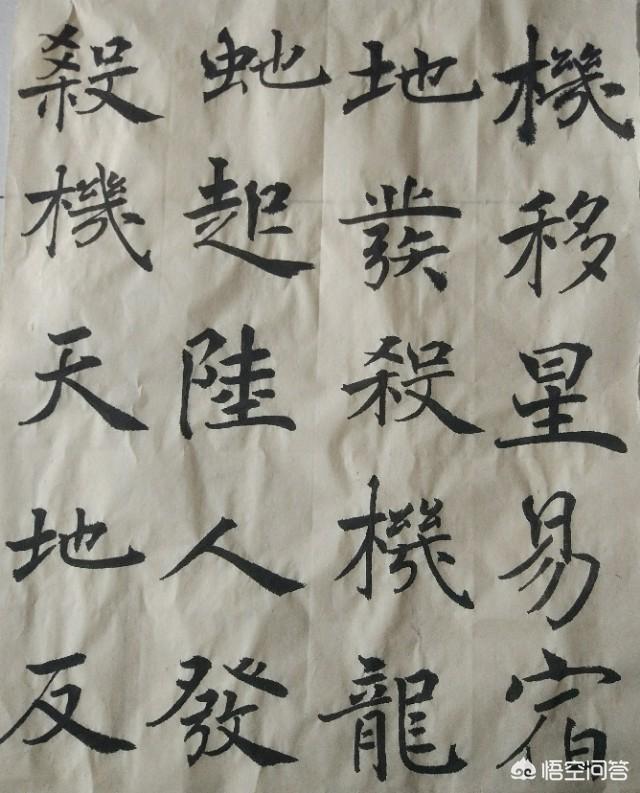 機移星易宿
地發殺機龍
虵起陸人發
殺機天地反
悟空问答